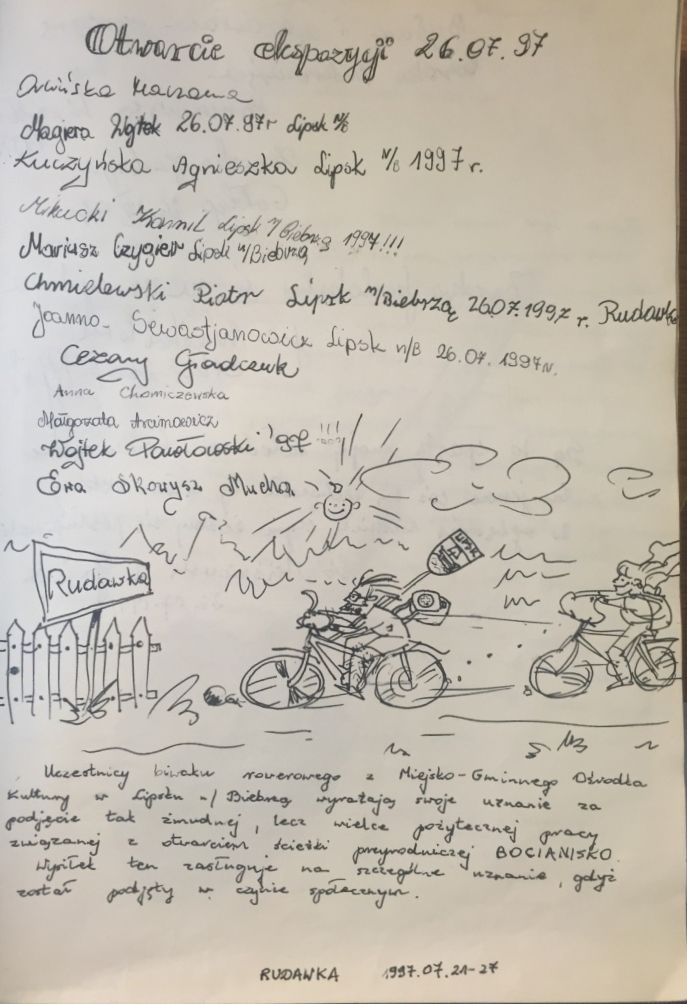 Otwarcie ekspozycji 26.07.97
Magiera Wojtek 26.07.97r Lipsk n/B
Kuczyńska Agnieszka Lipsk n/B 1997 r.
Mikucki Kamil Lipsk n/Biebrzą 1997!!!
Mariusz Czygier Lipsk n/Biebrzą
Chmielewski Piotr Lipsk n/Biebrzą 26.07.1997 r. Rudawka
Joanna Sewastjanowicz Lipsk n/B 26.07.1997r.
Cezary
Anna Chomiczewska
Małgorzata
Wojtek Pawłowski '97 !!!
Ewa Skowysz Mucha
Rudawka
Uczestnicy biwaku rowerowego z Miejsko-Gminnego Ośrodka
Kultury w Lipsku n/Biebrzą wyrażają swoje uznanie za
podjęcie tak żmudnej, lecz wielce pożytecznej pracy
związanej z otwarciem ścieżki przyrodniczej BOCIANISKO.
Wysiłek ten zasługuje na szczególne uznanie, gdyż
został podjęty w czynie społecznym.
RUDAWKA 1997.07.21-27